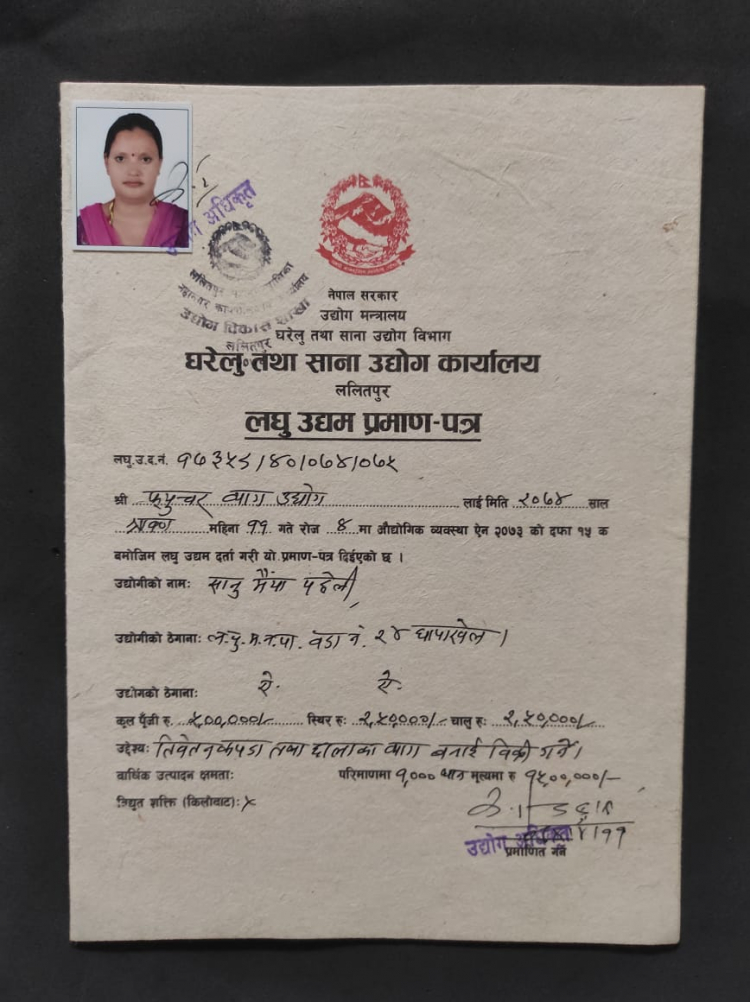 उद्योग अधिकृत
ललितपुर
उद्योग विकास शाखा
ललितपुर
नेपाल सरकार
उद्योग मन्त्रालय
घरेलु तथा साना उद्योग विभाग
घरेलु तथा साना उद्योग कार्यालय
ललितपुर
लघु उद्यम प्रमाण-पत्र
लघु.उ.द.नं. १७३५८/४०/०७४/०७५
श्री व्याग उद्योग लाई मिति २०७४ साल
श्रावण महिना ११ गते रोज ४ मा औद्योगिक व्यवस्था ऐन २०७३ को दफा १५ क
बमोजिम लघु उद्यम दर्ता गरी यो प्रमाण-पत्र दिईएको छ ।
उद्योगीको नामः सानु मैया
उद्योगीको ठेगानाः ल.पु.म.न.पा. वडा नं. २४ धापाखेल ।
उद्योगको ठेगानाः ऐ. ऐ.
कूल पूँजी रु. ५००,०००/- स्थिर रुः २,५००००/- चालु रुः २,५०,०००/-
उद्देश्यः कपडा तथा छालाका व्याग बनाई विक्री गर्ने।
वार्षिक उत्पादन क्षमताः परिमाणमा १,००० थान मूल्यमा रु १५,००,०००/-
विद्युत शक्ति (किलोवाट): ×
उद्योग अधिकृत
प्रमाणित गर्ने